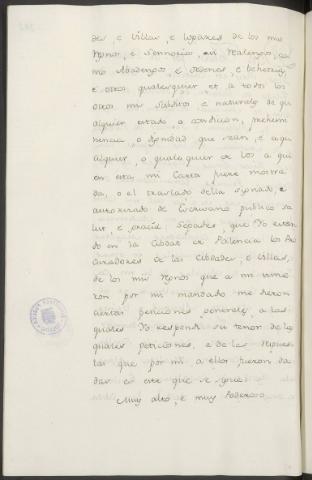 des, e Villas, e Lugares de los mis
Rynos, e Sennorios, asi Realengos, co
mo Abadengos, e Ordenes, e behetrias,
e otros qualesquier et a todos los
otros mis Subditos e naturales de qu
alquier estado, o condicion, prehemi
nencia, o dignidad que sean, e a qu
alquier, o qualesquier de vos a qui
en esta mi Carta fuere mostra
da, o el traslado della signado, e
autorizado de Escrivano publico sa
lut, e gracia Sepades, que Yo estan
do en la Cibdat de Palencia los Pro
curadores de las Cibdades, e villas,
de los mis Rynos que a mi vinie
ron por mi mandado me dieron
ciertas peticiones generales, a las
quales Yo respondi su tenor de las
quales peticiones, e de las repues
tas que por mi a ellos fueron da
das es este que se sigue:
Muy alto, e muy Poderoso